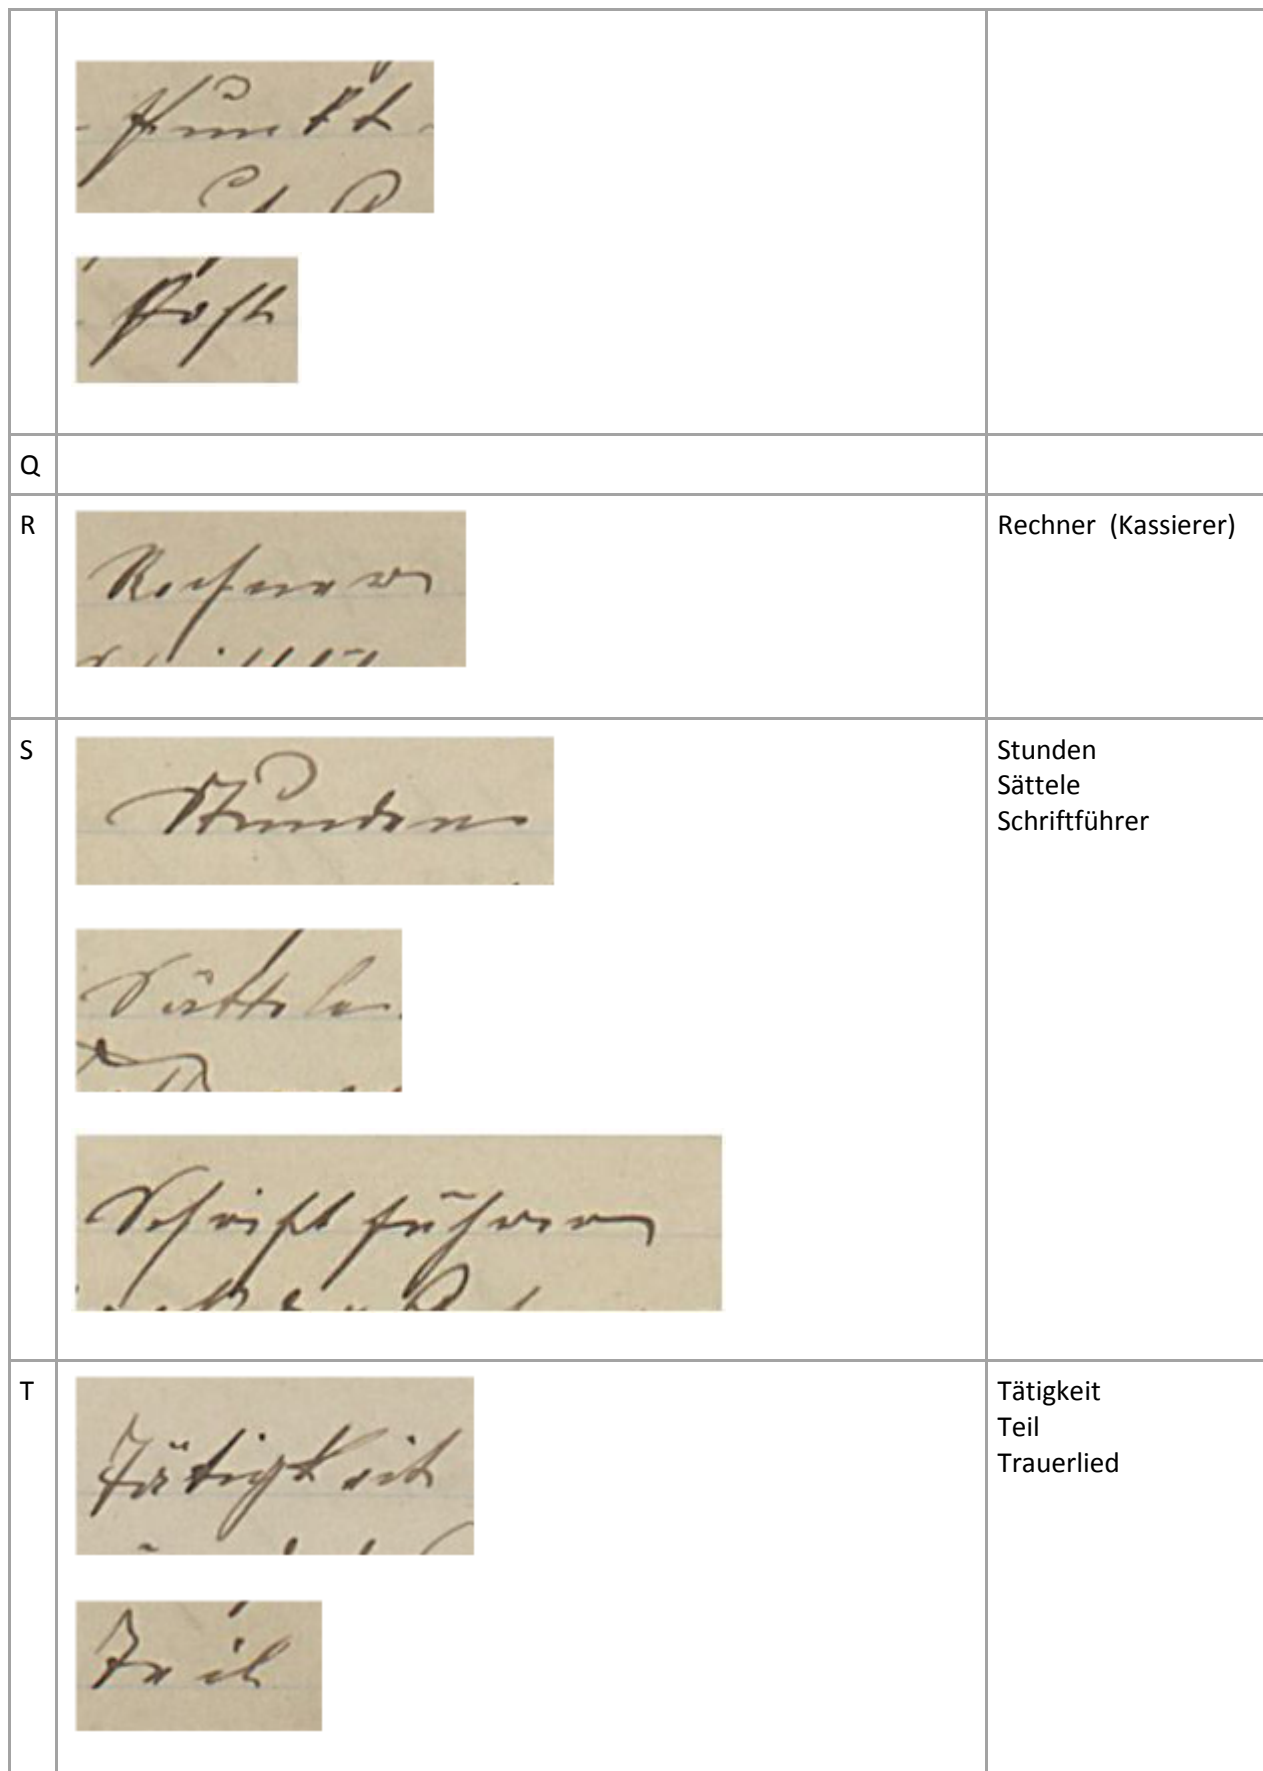 Punkt
Post
Q
R
Rechner
Rechner (Kassierer)
S
Stunden
Sättele
Schriftführer
Stunden
Sättele
Schriftführer
T
Tätigkeit
Teil
Tätigkeit
Teil
Trauerlied